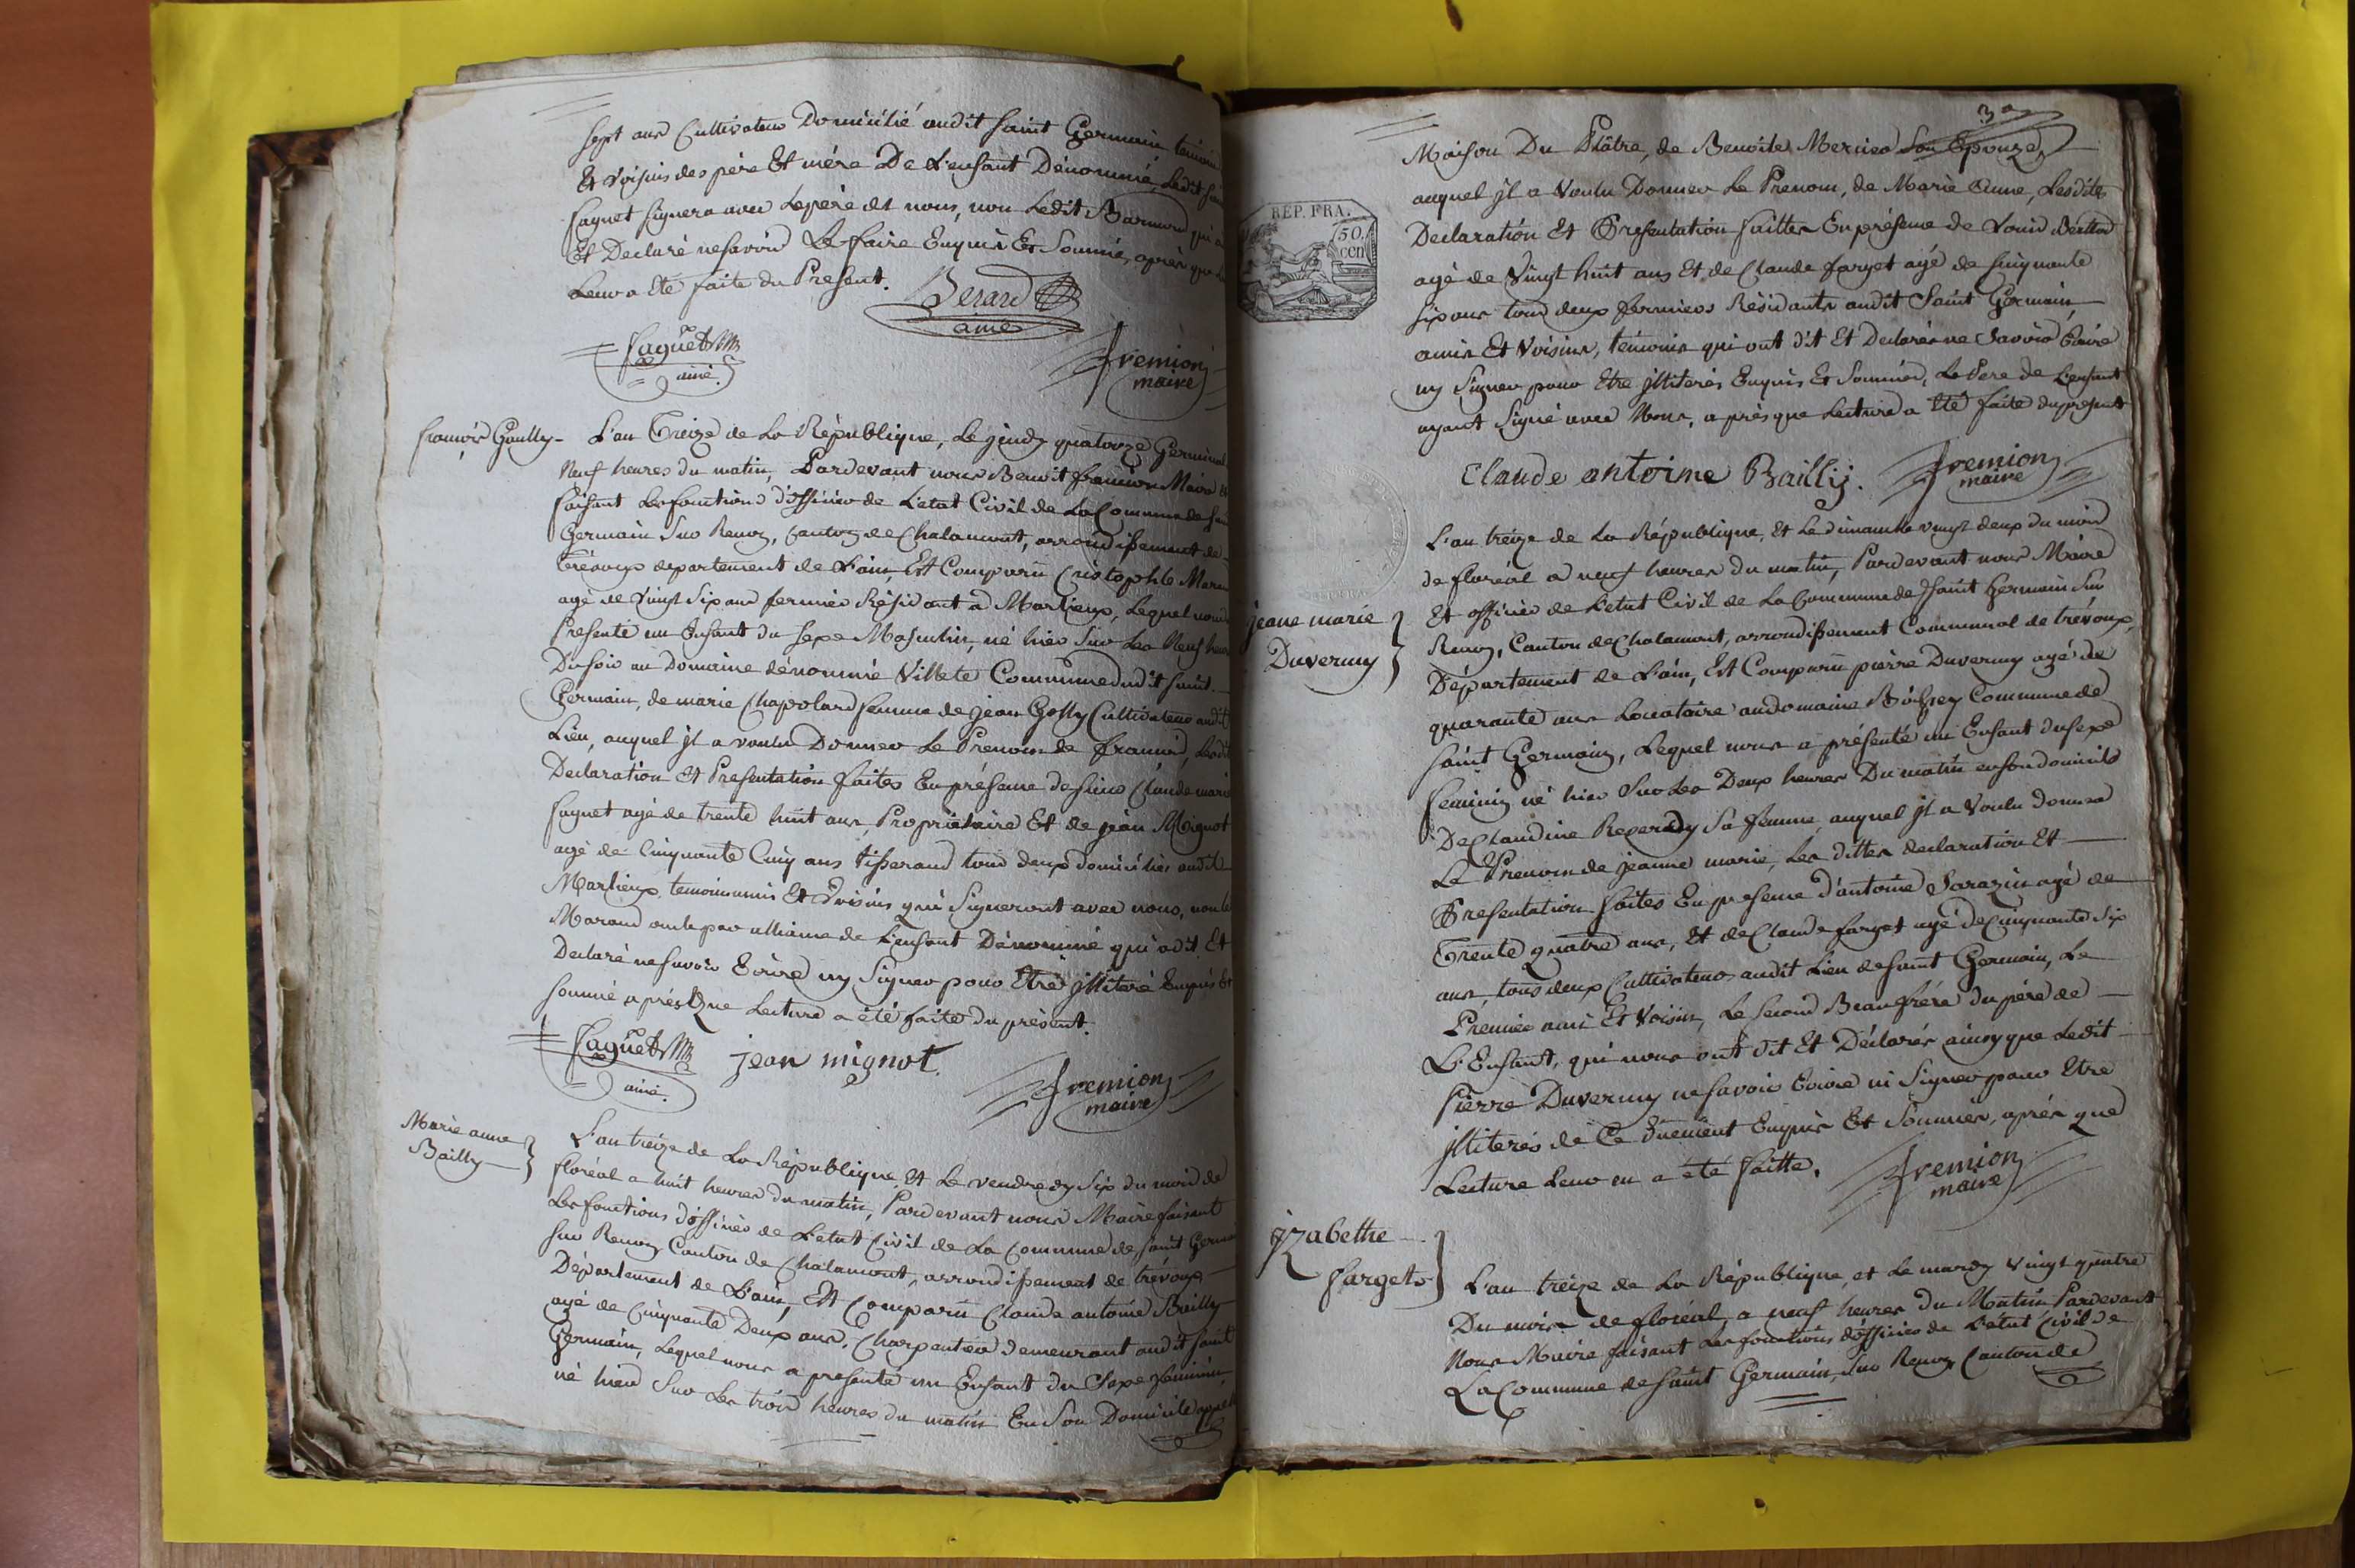 sept ans Cultivateur Domicilié audit saint Germain
Et Voisins des père Et mére De L'enfant Dénommé, Ledit
faguet signera avec Le père et nous, non Ledit
Et Declaré ne savoir Le faire Enquis Et Sommé, après que
Leur a Eté faite du Présent.
Berard
ainé
faguet
ainé.
fremion
maire
françois Goully
L'an Treize de La République, Le jeudy quatorze Germinal
Neuf heures du matin, Pardevant nous Benoit fremion Maire
faisant Les fonctions d'officier de L'etat Civil de La Commune de
Germain Sur Renon, Canton de Chalamont, arrondissement de
Trévoux departement de L'ain, Est Comparu Cristophle
agé de Vingt Six ans fermier Résidant a Marlieux, Lequel nous
Presenté un Enfant du sexe Masculin, né hier Sur Les Neuf
Du soir au Domaine dénommé Villete Commune dudit saint
Germain, de marie Chapolard femme de jean Golly Cultivateur audit
Lieu, auquel jl a voulu Donner Le Prenom de françois,
Declaration Et Presentation faites En présence de sieur Claude marie
faguet agé de trente huit ans, Propriétaire Et de jean Mignot
agé de Cinquante Cinq ans tisserand tous deux domiciliés audit
Marlieux, temoins amis Et Voisins qui Signeront avec nous, non le
Marand oncle par alliance de L'enfant Dénommé qui a dit Et
Declaré ne savoir Ecrire ny Signer pour Etre jlliteré Enquis Et
sommé après Que Lecture a été faite du présent.
faguet
ainé.
jean mignot.
fremion
maire
Marie anne
Bailly
L'an treize de La République, Et Le vendredy Six du mois de
floréal a huit heures du matin, Pardevant nous Maire faisant
Les fonctions d'officier de L'etat Civil de La Commune de saint
sur Renon Canton de Chalamont, arrondissement de trévoux
Département de L'ain, Est Comparu Claude antoine Bailly
agé de Cinquante Deux ans, Charpentier demeurant audit saint
Germain, Lequel nous a presenté un Enfant du Sexe féminin
né hier Sur Les trois heures du matin En Son Domicile
3
REP. FRA.
50.
cen
Maison Du Plâtre, de Benoite Mercier Son Epouze,
auquel jl a Voulu Donner Le Prenom, de Marie Anne, Lesdites
Declaration Et Presentation faittes En présence de Louis
agé de Vingt huit ans Et de Claude farget agé de Cinquante
six ans tous deux fermiers Résidants audit Saint Germain,
amis Et Voisins, témoins qui ont dit Et Declarés ne Savoir Ecrire
ny Signer pour Etre jlliterés Enquis Et Sommés, Le Pere de L'enfant
ayant Signé avec Nous, après que Lecture a Eté faite du présent
Claude antoine Bailly.
fremion
maire
jeane marie
Duverny
L'an treize de La République, Et Le dimanche vingt deux du mois
de floréal a neuf heures du matin, Pardevant nous Maire
Et officier de L'etat Civil de La Commune de Saint Germain Sur
Renon, Canton de Chalamont, arrondissement Communal de trévoux,
Département de L'ain, Est Comparu pierre Duverny agé de
quarante ans Locataire au domaine Commune de
saint Germain, Lequel nous a présenté un Enfant du sexe
feminin né hier Sur Les Deux heures Du matin en son domicile
De Claudine Reverdy Sa femme, auquel jl a Voulu donner
Le Prenom de jeanne marie, Les dittes declaration Et
Presentation faites En presence d'antoine Sarazin agé de
Trente quatre ans, Et de Claude farget agé de Cinquante six
ans, tous deux Cultivateurs audit Lieu de saint Germain, Le
Premier ami Et Voisin, Le Second Beaufrére du père de
L'Enfant, qui nous ont dit Et Déclarés ainsy que Ledit
Pierre Duverny ne savoir Ecrire ni Signer pour Etre
jlliterés de Ce duement Enquis Et Sommés, après que
Lecture Leur en a été faitte.
fremion
maire
jzabethe
farget
L'an treize de La République, et Le mardy Vingt quatre
Du mois de floréal, a neuf heures du Matin Pardevant
Nous Maire faisant Les fonctions d'officier de L'etat Civil de
La Commune de saint Germain, Sur Renon, Canton de